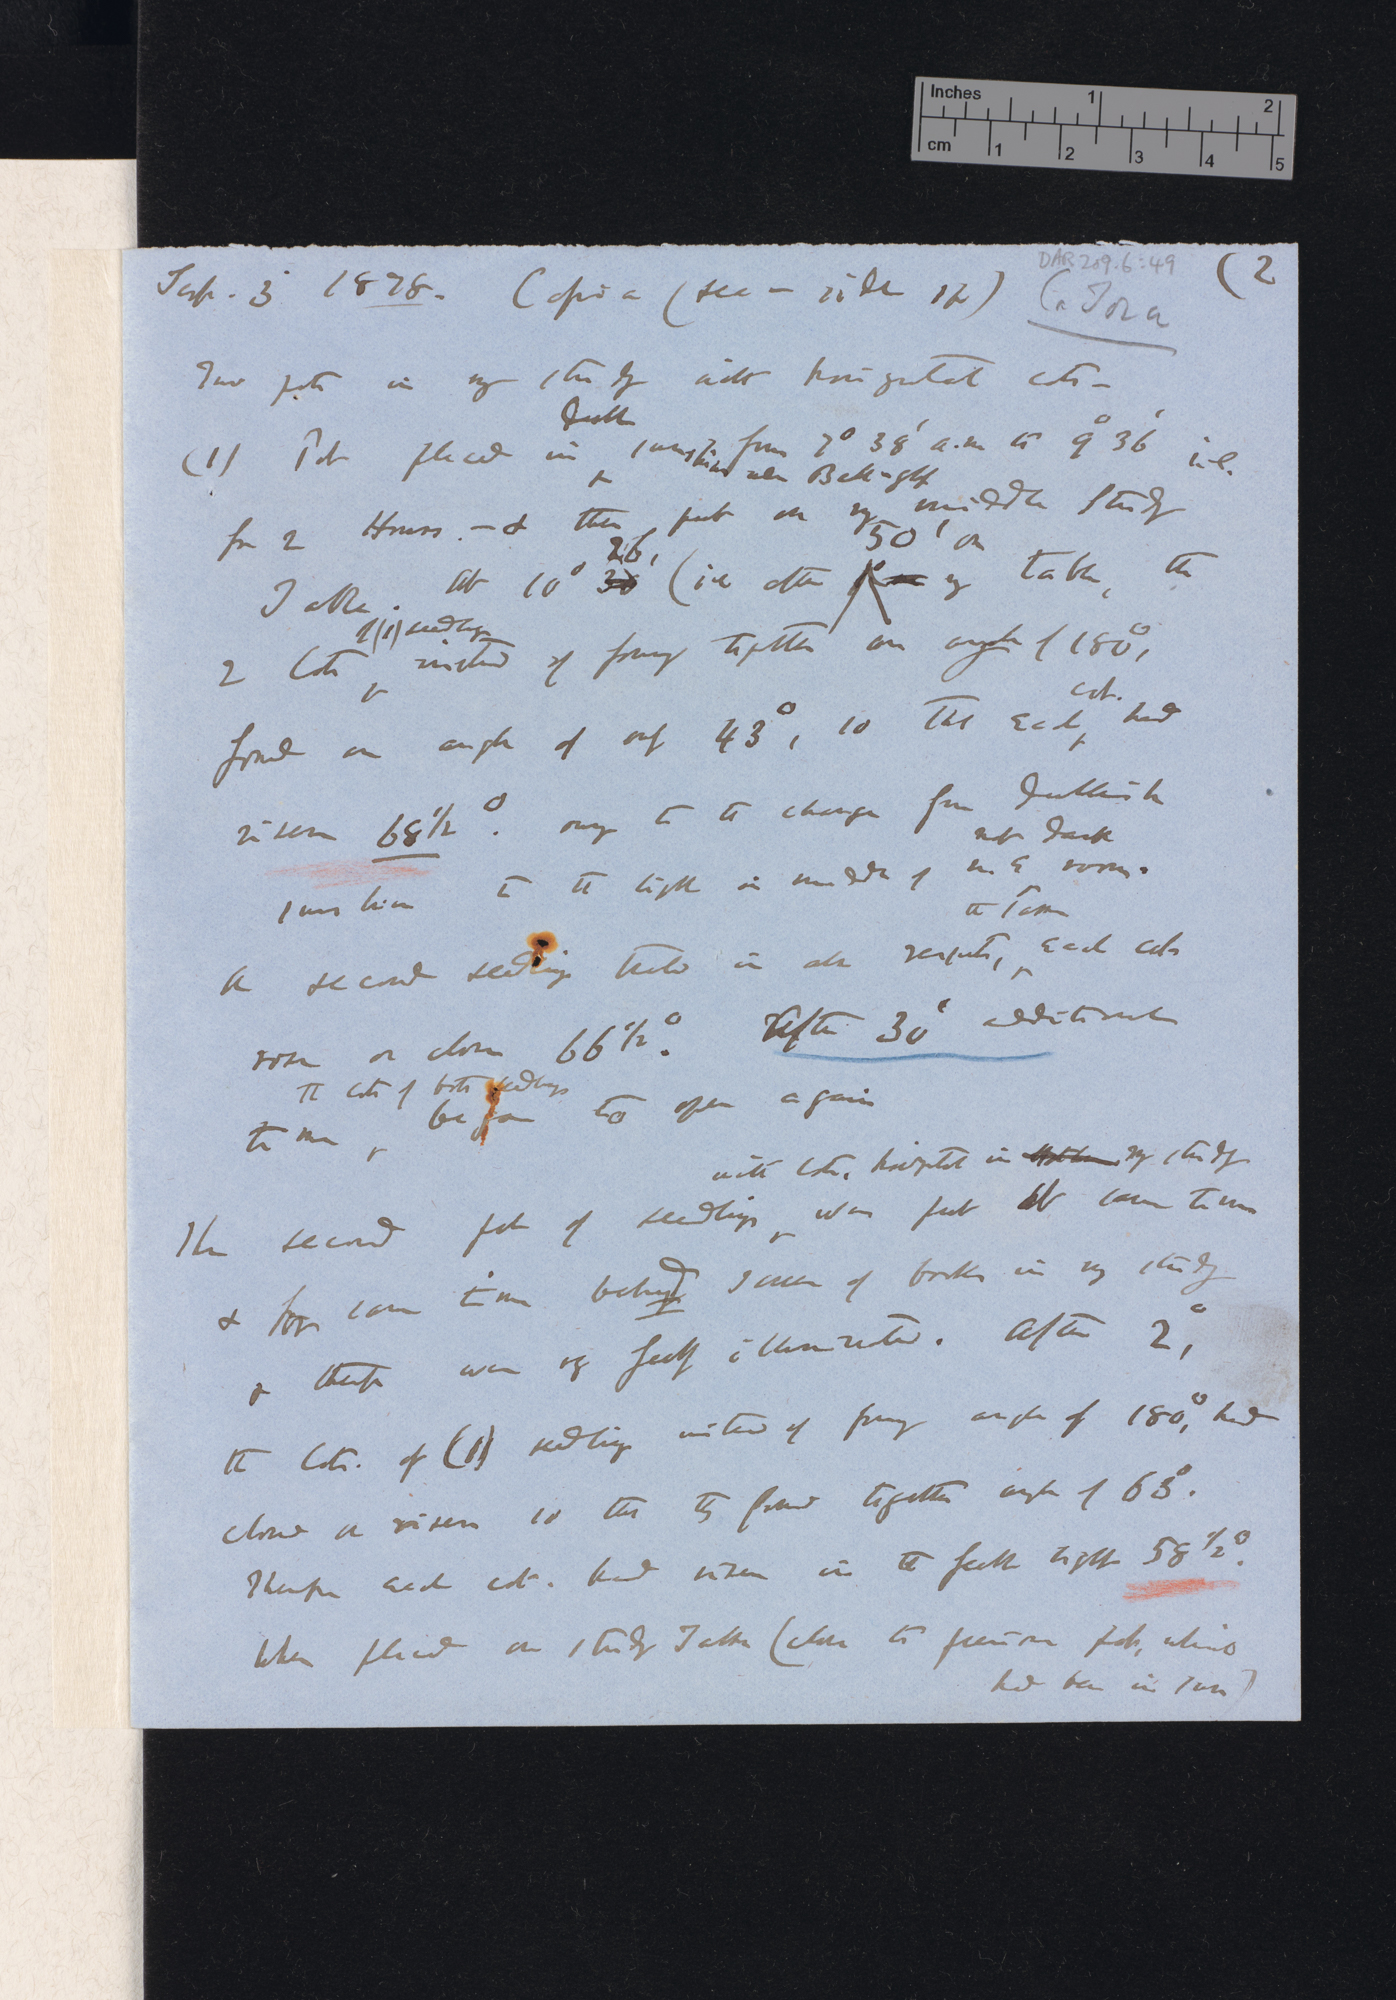 Inches 1 2
cm 1 2 3 4 5
DAR 209.6:49
(2
Sept. 3 1878. Cassia (sea-side sp) C. Tora
Two pots in my study with horizontal cots—
dull
(1) Pot placed in sunshine from 7° 38' a.m to 9° 36' i.e.
under Bell-glass
for 2 Hours. — & then put on my middle Study
26' 50' on
Table. At 10° 30' (ie after my table, the
of (1) seedling
2 Cots instead of forming together an angle of 180°,
cot.
formed an angle of only 43°, so that each had
risen 68 1/2°. owing to the change from dullish
not dark
sunshine to the light in middle of room.
the same
A second seedling treated in all respects, each cots
rose or closed 66 1/2°. After 30' additional
the cots of both seedlings
time began to open again
with cots. horizontal in my study
The second pot of seedlings was put at same time
& for same time behind screen of books in my study
& therefore was feebly illuminated. After 2°,
the Cots. of (1) seedling instead of forming angle of 180°, had
closed or risen so that they formed together angle of 63°.
Therefore each cot. had risen in the feeble light 58 1/2°.
When placed on study Table (close to previous pots, which
had been in sun)